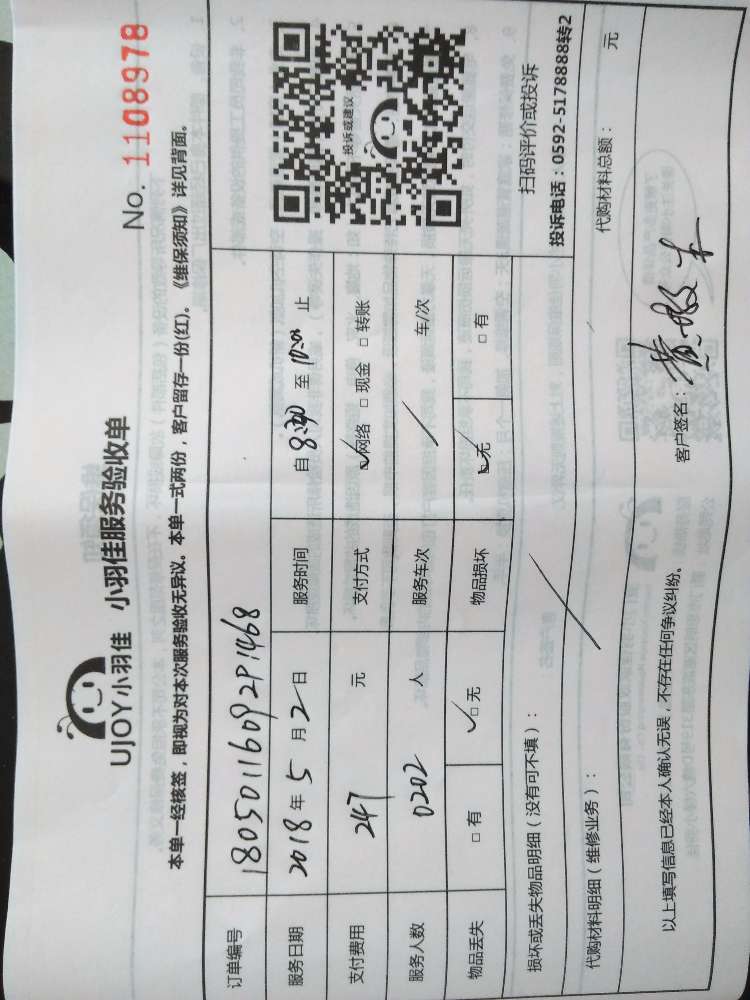 UJOY小羽佳 小羽佳服务验收单
No. 1108978
本单一经核签，即视为对本次服务验收无异议。本单一式两份，客户留存一份(红)。《维保须知》详见背面。
订单编号 18050116092P1468
服务日期 2018年5月2日 服务时间 自8:30至10:00止
支付费用 247 元 支付方式 ☑网络 □现金 □转账
服务人数 0202 人 服务车次 / 车/次
物品丢失 □有 ☑无 物品损坏 ☑无 □有
投诉或建议
扫码评价或投诉
投诉电话：0592-5178888转2
损坏或丢失物品明细（没有可不填）：
代购材料明细（维修业务）： 代购材料总额： 元
以上填写信息已经本人确认无误，不存在任何争议纠纷。 客户签名：